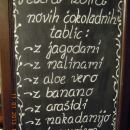 novih čokoladnih
tablic:
~z jagodami
~z malinami
~z aloe vero
~z banano
~z arašidi
~z makadamijo